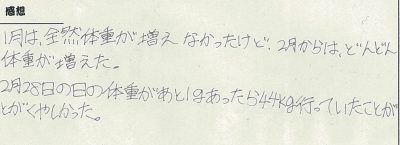 感想
1月は、全然体重が増えなかったけど、2月からは、どんどん
体重が増えた。
2月28日の日の体重があと1gあったら44kg行っていたことが
とがくやしかった。